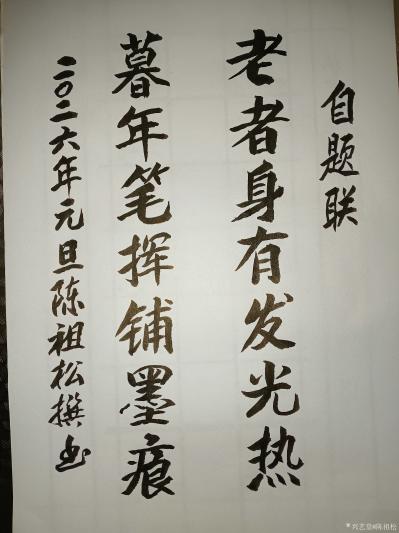 自题联
老者身有发光热
暮年笔挥铺墨痕
二〇二六年元旦陈祖松撰书